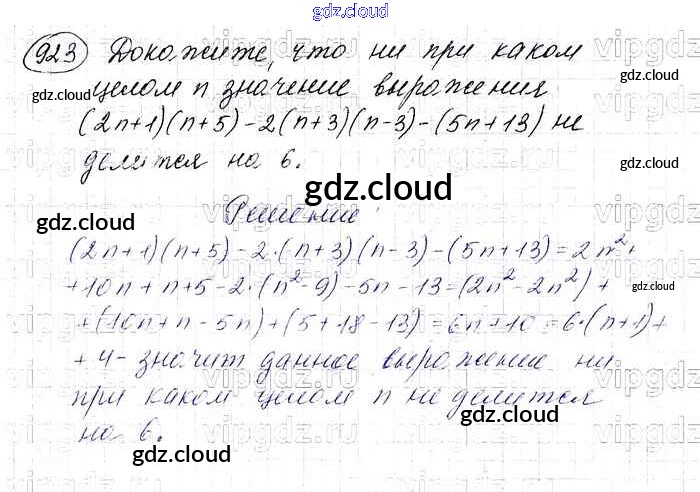 gdz.cloud
923 Докажите, что ни при каком
gdz.cloud gdz.cloud
целом n значение выражения
(2n+1)(n+5)-2(n+3)(n-3)-(5n+13) не
делится на 6.
gdz.cloud
gdz.cloud
gdz.cloud
Решение:
(2n+1)(n+5)-2·(n+3)(n-3)-(5n+13)=2n²+
+10n+n+5-2·(n²-9)-5n-13=(2n²-2n²)+
gdz.cloud
+(10n+n-5n)+(5+18-13)=6n+10=6·(n+1)+
gdz.cloud
+4-значит данное выражение ни
при каком целом n не делится
gdz.cloud
на 6.
gdz.cloud
gdz.cloud